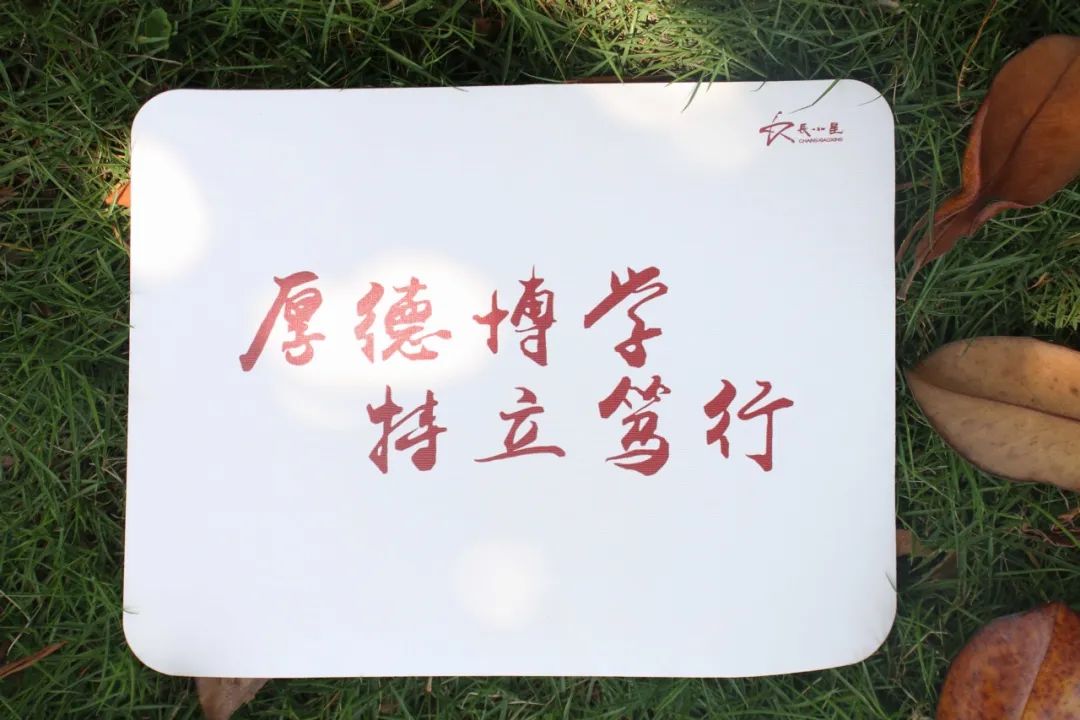 長小星
CHANGXIAOXING
厚德博学
特立笃行